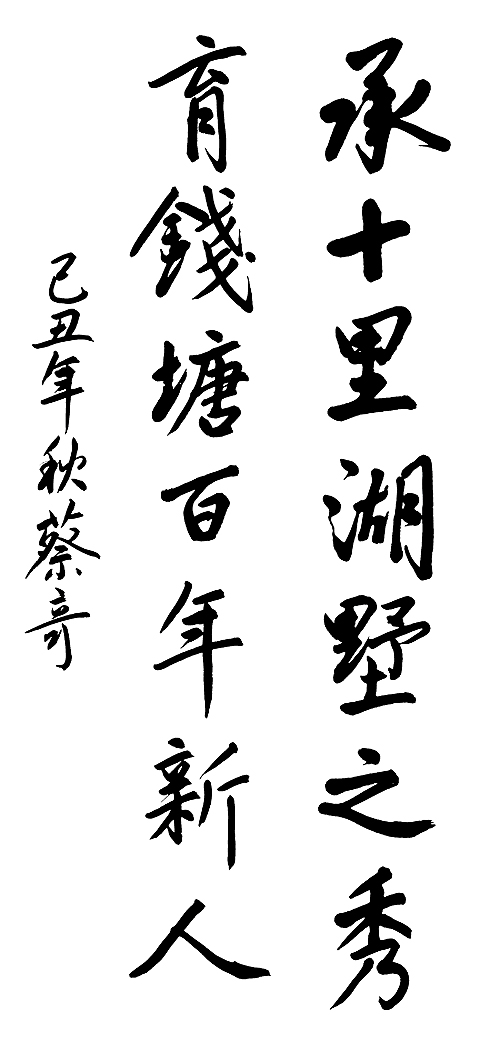 承十里湖墅之秀
育錢塘百年新人
己丑年秋蔡奇